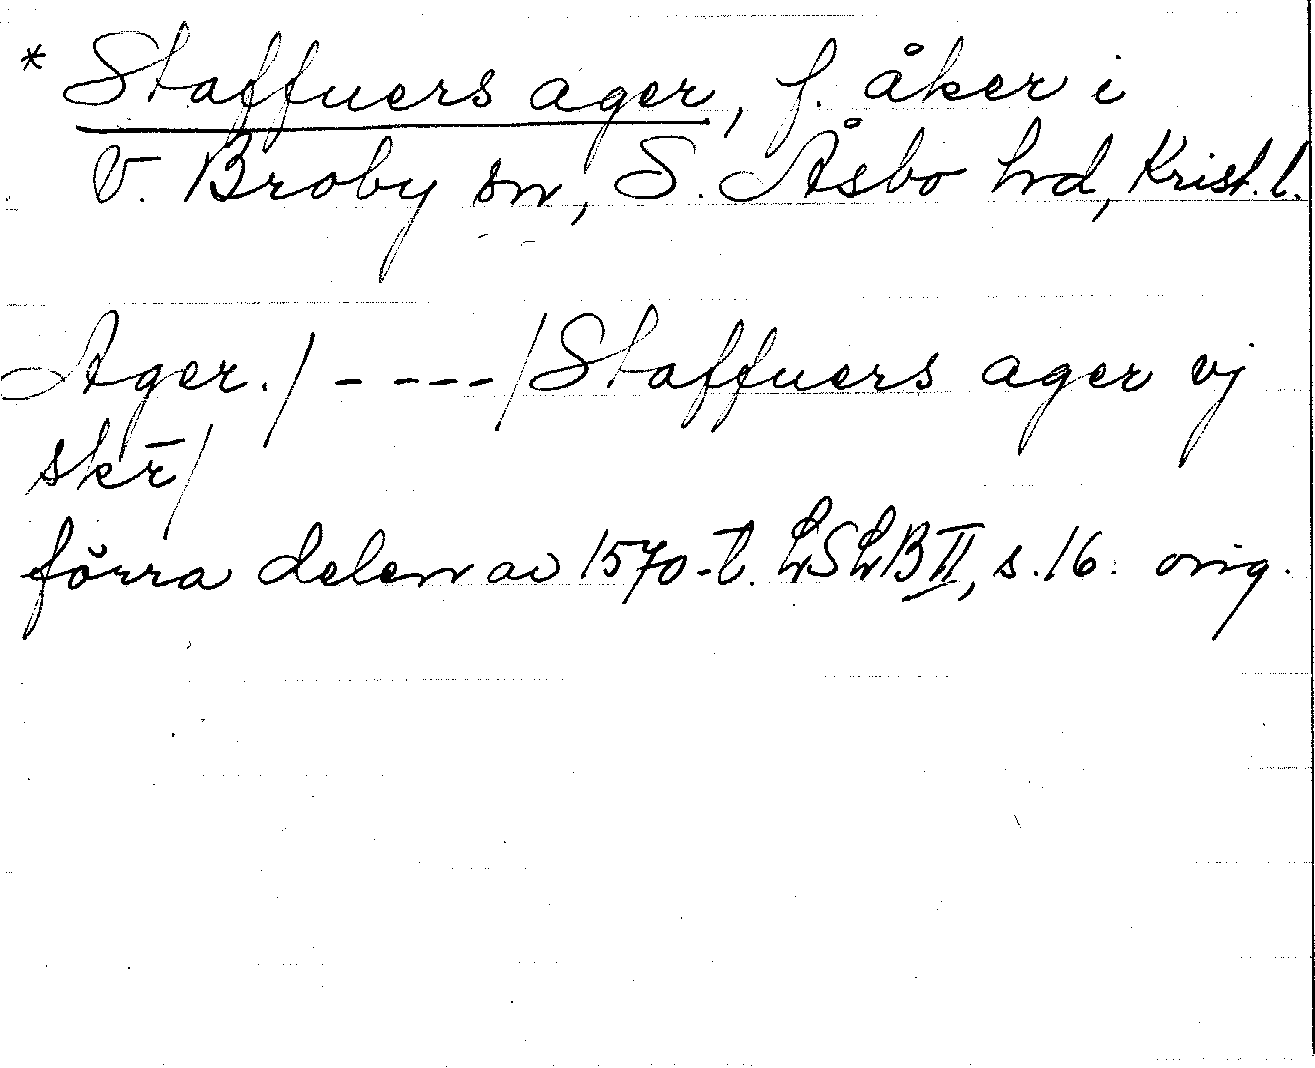 * Staffuers ager, f. åker i
V. Broby sn, S. Åsbo hd, Krist. l.
Ager. / - - - - - / Staffuers ager vj
skr̄ /
förra delen av 1570-t. LSLB II, s. 16. orig.